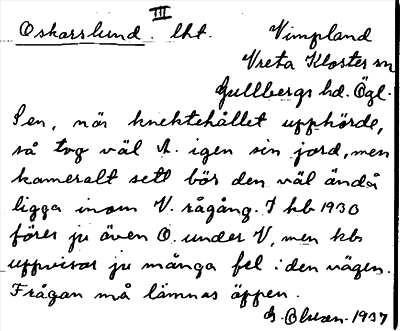 III
Oskarslund. lht. Vimpland
Vreta Kloster sn
Gullbergs hd. Ögl.
Sen, när knektehållet upphörde,
så tog väl V. igen sin jord, men
kameralt sett bör den väl ändå
ligga inom V. rågång. I kb 1930
föres ju även O. under V, men kb
uppvisar ju många fel i den vägen.
Frågan må lämnas öppen.
G. Olson. 1937